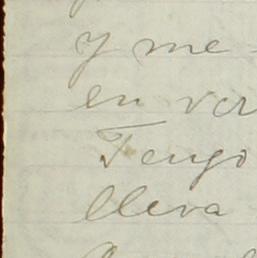 y me
en ver
Tengo
lleva